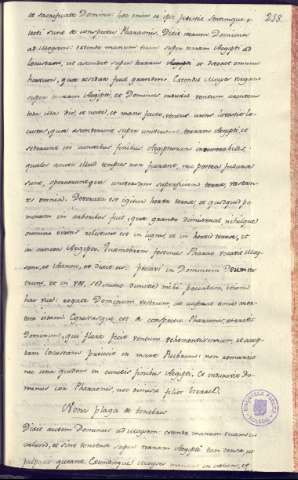 et sacrificate Domino: hoc enim et ipsi petistis Statimque e- 238.
jecti sunt de conspectu Pharaonis. Dixit autem Dominus
ad Moysen: extende manum tuam super terram Aegypti ad
locustam, ut ascendat super terram et devoret omnem
herbam, quae residua fuit grandini. Extendit Moyses virgam
super terram Aegypti, et Dominus induxit ventum urentem
tota illa die, et nocte, et mane facto, ventus urens levavit lo-
custas, quae ascenderunt super universam terram Aegypti, et
sederunt in cunctis finibus Aegyptiorum innumerabiles;
quales ante illud tempus non fuerant, nec postea futurae
sunt, operueruntque universam superficiem terrae, vastan-
tes omnia. Devorata est igitur herba terrae, et quidquid po-
morum in arboribus fuit, quae grando dimiserat, nihilque
omnino virens relictum est in lignis, et in herbis terrae, et
in cuncta Aegypto. Quamobrem festinus Pharao vocavit Moy-
sen, et Aharon, et dixit eis: peccavi in Dominum Deum ves-
trum, et in vos, sed nunc dimitte mihi peccatum etiam
hac vice, rogate Dominum vestrum, ut auferat a me mor-
tem istam. Egressusque est de conspectu Pharaonis, oravit
Dominum, qui flare fecit ventum vehementissimum, et arrep-
tam locustam projecit in mare Rubrum: non remansit
nec una quidem in cunctis finibus Aegypti, et induravit Do-
minus cor Pharaonis, nec dimisit filios Israel.
Nona plaga de tenebris
Dixit autem Dominus ad Moysem: extende manum tuam in
coelum, et sint tenebrae super terram Aegypti tam densae, ut
palpari queant. Extenditque Moyses manum in coelum, et